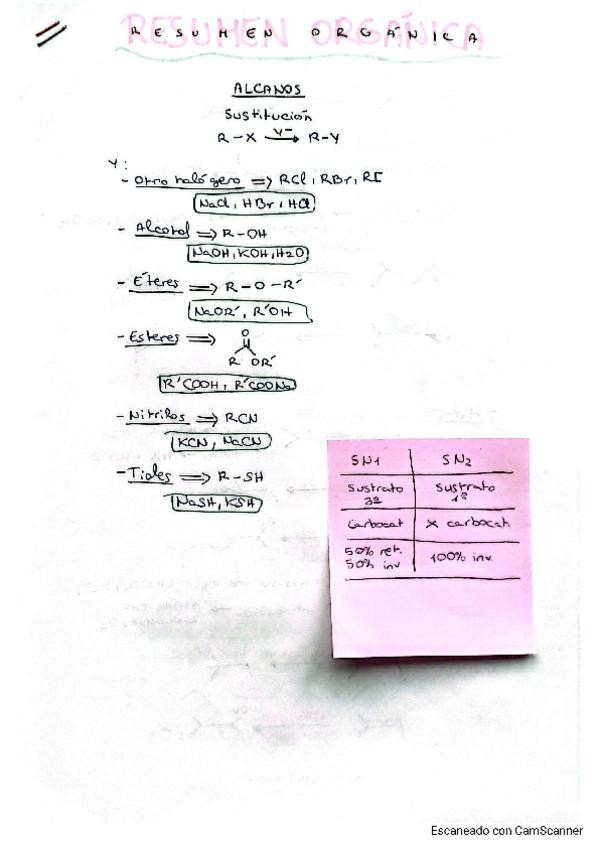 RESUMEN ORGÁNICA
ALCANOS
Sustitución
R-X —Y⁻→ R-Y
Y:
- Otro halógeno ⇒ RCl, RBr, RI
NaCl, HBr, HCl
- Alcohol ⇒ R-OH
NaOH, KOH, H2O
- Éteres ⇒ R-O-R'
NaOR', R'OH
- Esteres ⇒
O
R OR'
R'COOH, R'COONa
- Nitrilos ⇒ RCN
KCN, NaCN
- Tioles ⇒ R-SH
NaSH, KSH
SN1 SN2
Sustrato 3º Sustrato 1º
Carbocat X carbocat.
50% ret. 50% inv 100% inv.
Escaneado con CamScanner